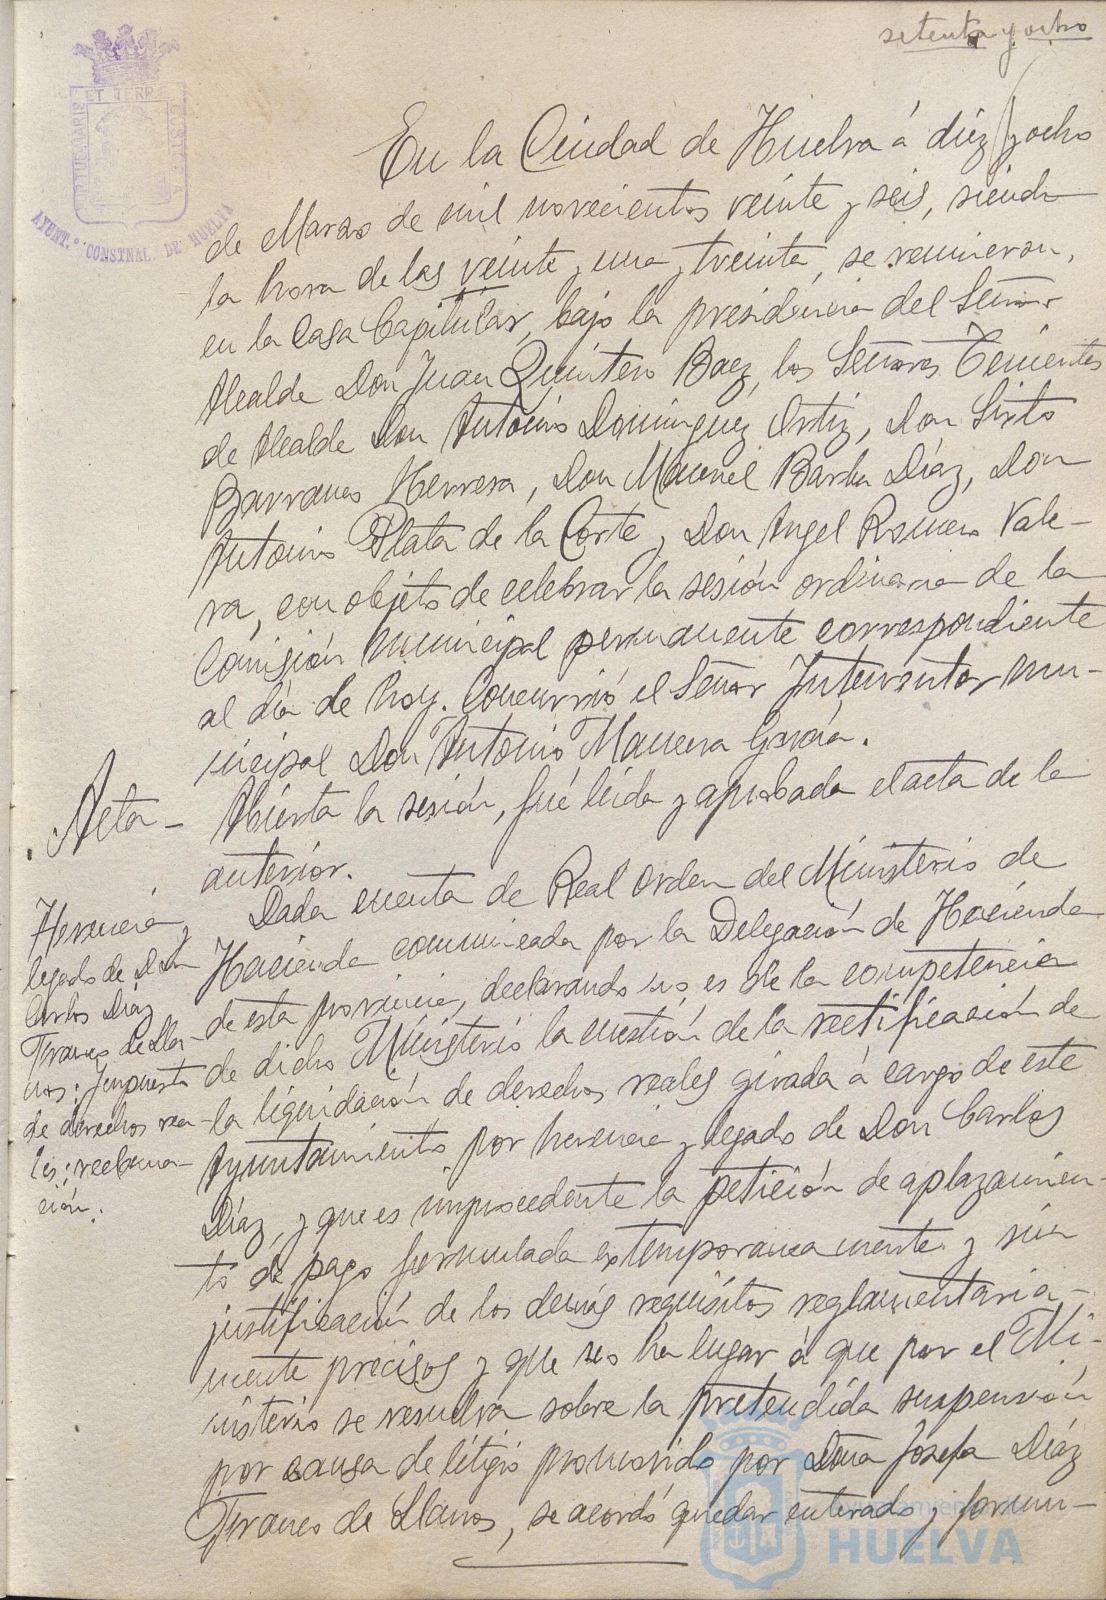 setenta y ocho
PORTUS MARIS ET TERRÆ CUSTODIA
AYUNT.º CONSTNAL. DE HUELVA
En la Ciudad de Huelva á diez y ocho
de Marzo de mil novecientos veinte y seis, siendo
la hora de las veinte y una y treinta, se reunieron,
en la Casa Capitular, bajo la presidencia del Señor
Alcalde Don Juan Quintero Baez, los Señores Tenientes
de Alcalde Don Antonio Dominguez Ortiz, Don Sixto
Barranco Herrera, Don Manuel Barba Díaz, Don
Antonio Plata de la Corte y Don Angel Romero Vale-
ra, con objeto de celebrar la sesión ordinaria de la
Comisión municipal permanente correspondiente
al día de hoy. Concurrió el Señor Interventor mu-
nicipal Don Antonio Manuera García.
Acta-
Abierta la sesión, fué leida y aprobada el acta de la
anterior.
Herencia y
legado de Don
Carlos Díaz
Franco de Lla-
nos: Impuesto
de derechos rea-
les: reclama-
ción.
Dada cuenta de Real Orden del Ministerio de
Hacienda comunicada por la Delegación de Hacienda
de esta provincia, declarando no es de la competencia
de dicho Ministerio la cuestión de la rectificación de
la liquidación de derechos reales girada á cargo de este
Ayuntamiento por herencia y legado de Don Carlos
Díaz, y que es improcedente la petición de aplazamien-
to de pago formulada extemporanea mente y sin
justificación de los demás requisitos reglamentaria-
mente precisos y que no ha lugar á que por el Mi-
nisterio se resuelva sobre la pretendida suspensión
por causa de litigio promovido por Doña Josefa Díaz
Franco de Llanos, se acordó quedar enterado y formu-
Ayuntamiento
HUELVA